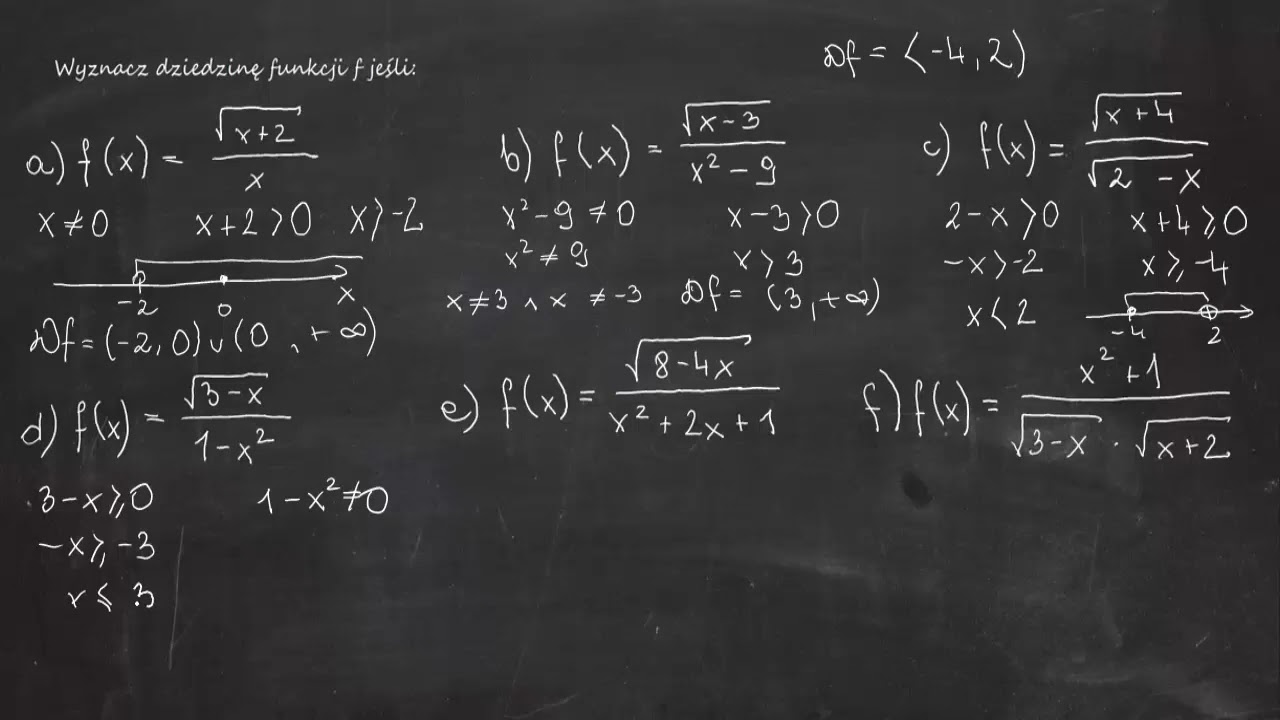 Wyznacz dziedzinę funkcji f jeśli:
Df = ⟨-4, 2)
a) f(x) = √(x+2) / x
x ≠ 0   x+2 > 0   x > -2
-2   0   x
Df = (-2, 0) ∪ (0, +∞)
b) f(x) = √(x-3) / (x² - 9)
x² - 9 ≠ 0   x - 3 > 0
x² ≠ 9   x > 3
x ≠ 3 ∧ x ≠ -3   Df = (3, +∞)
c) f(x) = √(x+4) / √(2 - x)
2 - x > 0   x + 4 ⩾ 0
-x > -2   x ⩾ -4
x < 2
-4   2
d) f(x) = √(3-x) / (1-x²)
3 - x ⩾ 0   1 - x² ≠ 0
-x ⩾ -3
x ⩽ 3
e) f(x) = √(8-4x) / (x² + 2x + 1)
f) f(x) = (x² + 1) / (√(3-x) · √(x+2))